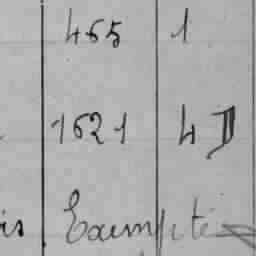 465 1
1621 4 D
is Exempté